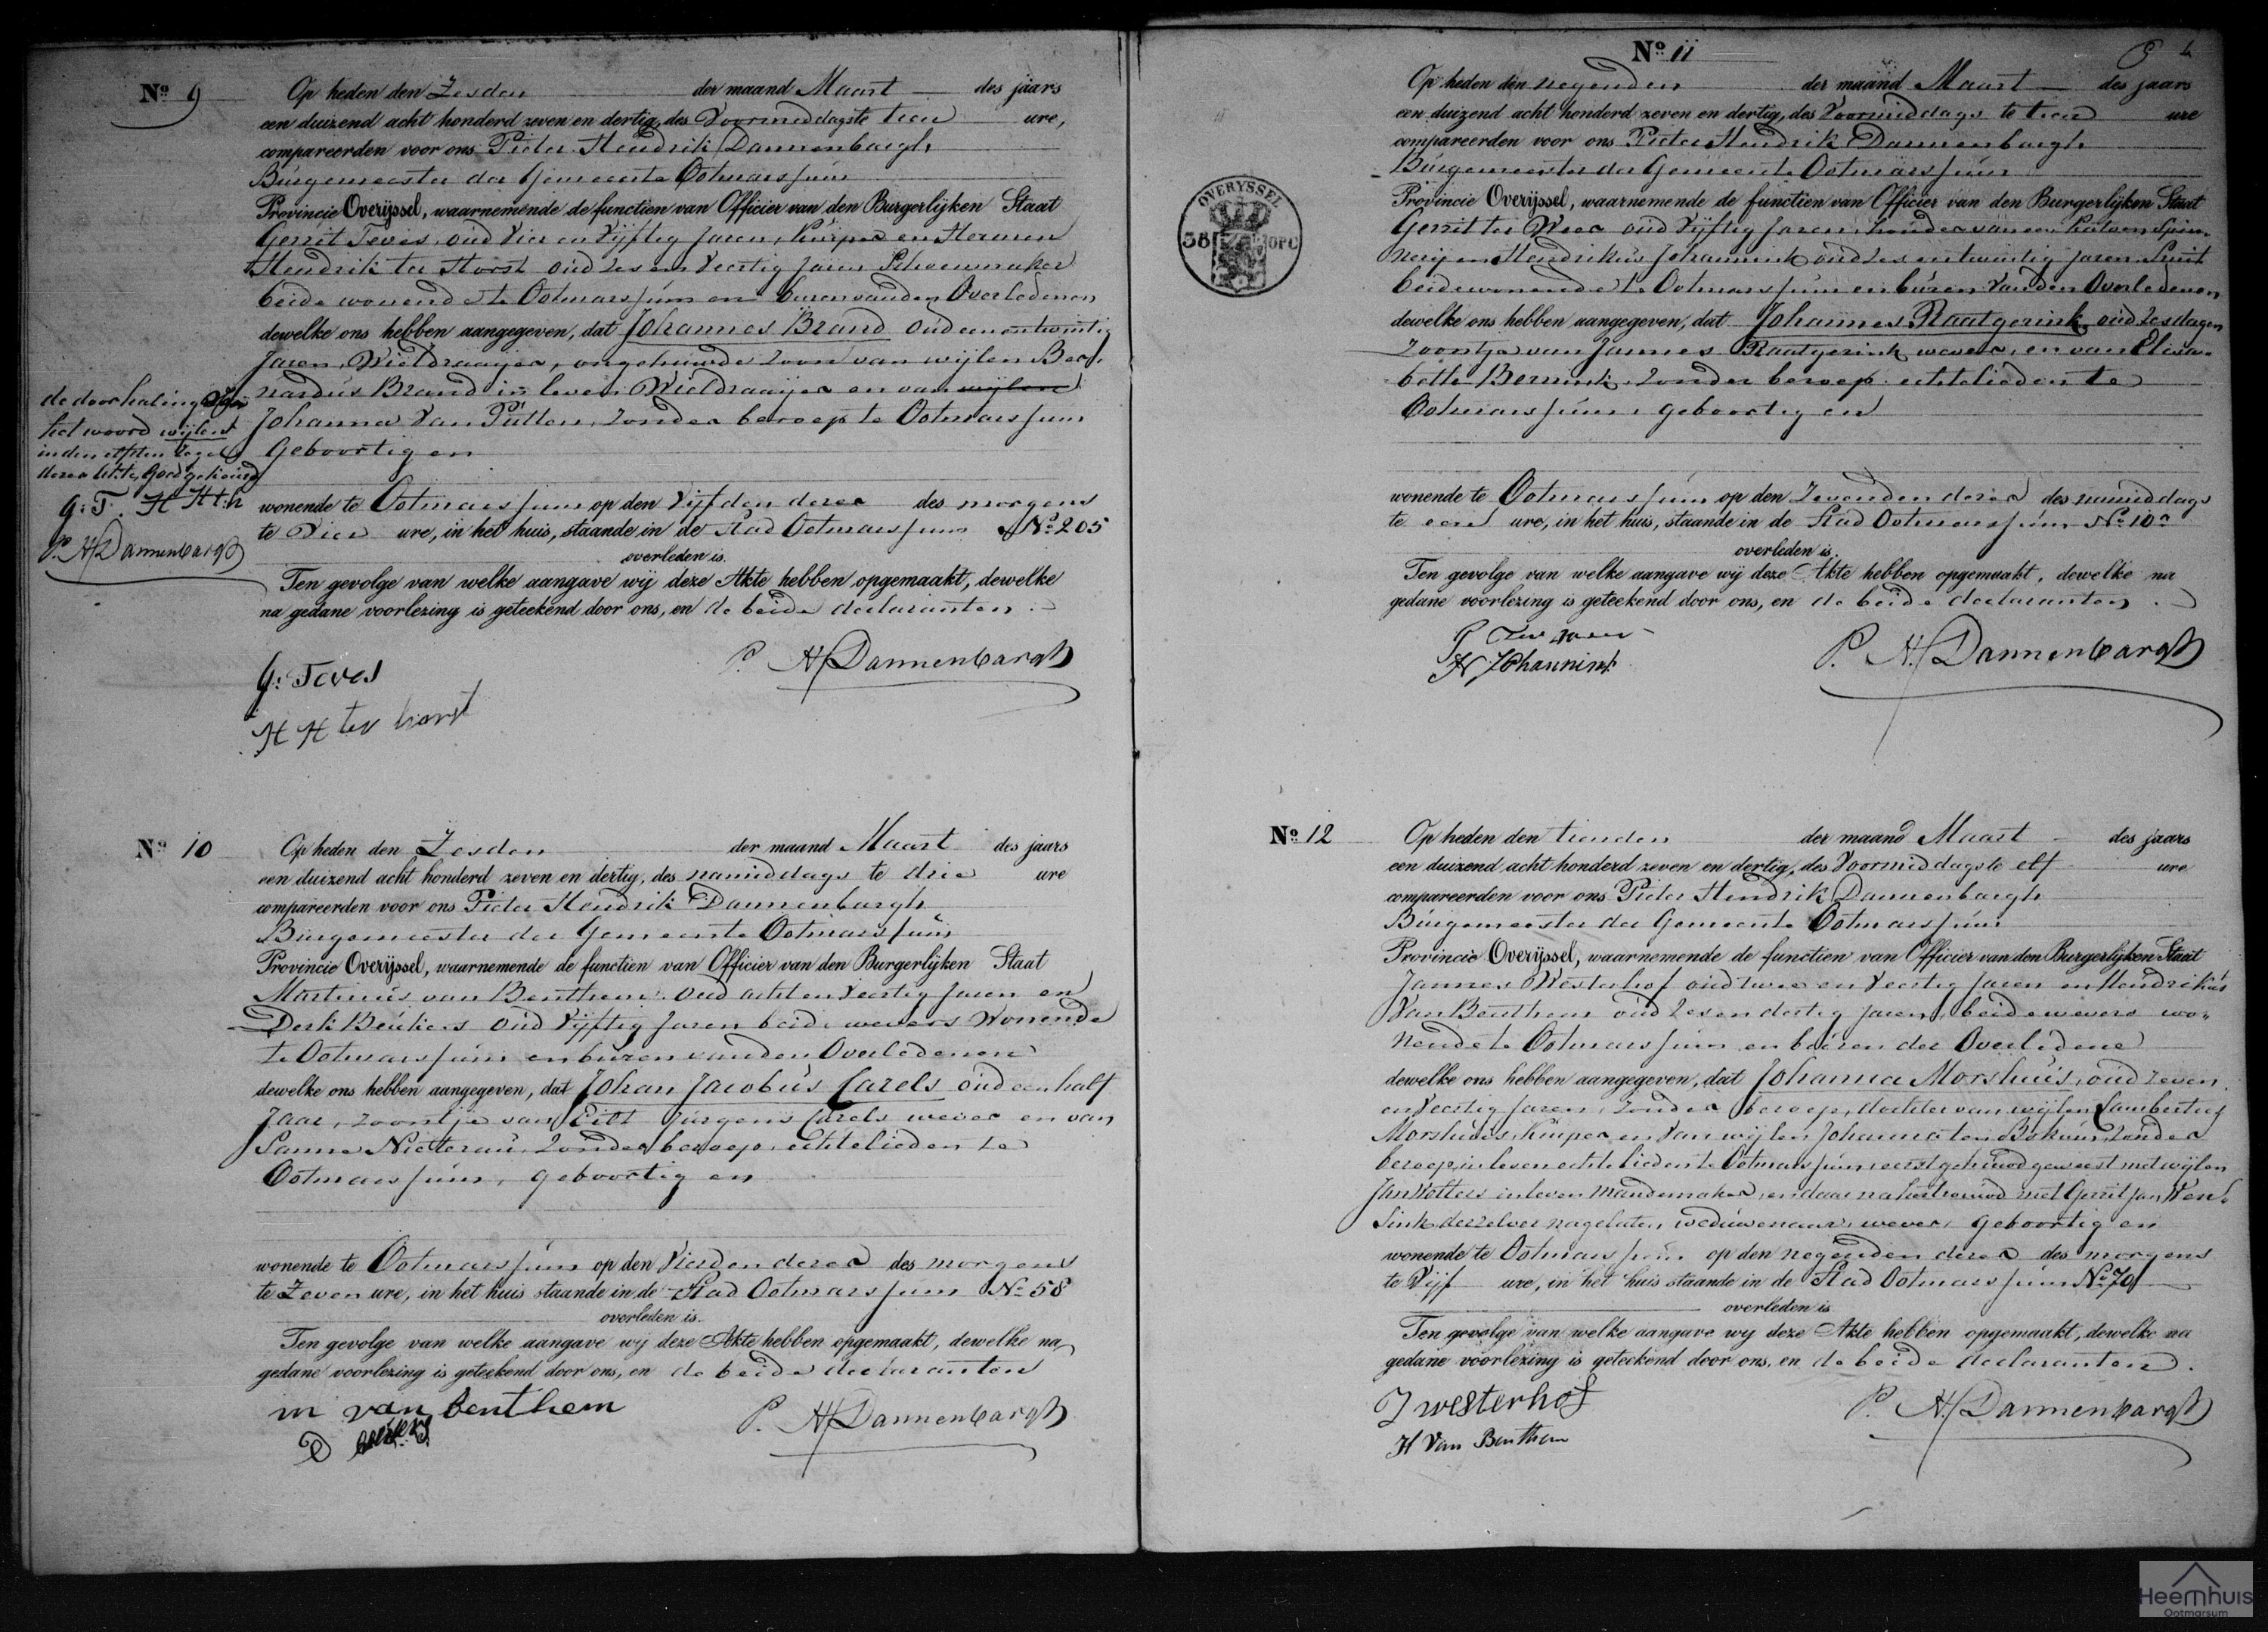 No 9
Op heden den Zesden der maand Maart des jaars
een duizend acht honderd zeven en dertig, des Voormiddags te tien ure,
compareerden voor ons Pieter Hendrik Dannenbargh
Burgemeester der Gemeente Ootmarssum
Provincie Overijssel, waarnemende de functien van Officier van den Burgerlijken Staat
Gerrit Teves, oud Vier en Vijftig Jaren, Kuiper en Hermen
Hendrik ter Horst oud zes en Veertig Jaren Schoenmaker
beide wonende te Ootmarssum en buren van den Overledenen
dewelke ons hebben aangegeven, dat Johannes Brand oud een en twintig
Jaren, Wieldraayer, ongehuwde zoon van wijlen Ber-
nardus Brand in leven Wieldraayer en van wijlen
Johanna Van Putten, zonder beroep te Ootmarssum
Geboortig en
wonende te Ootmarssum op den Vijfden dezer des morgens
te Vier ure, in het huis, staande in de Stad Ootmarssum No 205
overleden is.
Ten gevolge van welke aangave wij deze Akte hebben opgemaakt, dewelke
na gedane voorlezing is geteekend door ons, en de beide declaranten.
G: Teves
P. H. Dannenbargh
H H ter horst
de doorhaling van
het woord wijlen
in den elfden regel
dezer akte, goedgekeurd
G: T. H H t.h
P. H. Dannenbargh
No 10
Op heden den Zesden der maand Maart des jaars
een duizend acht honderd zeven en dertig, des namiddags te drie ure
compareerden voor ons Pieter Hendrik Dannenbargh
Burgemeester der Gemeente Ootmarssum
Provincie Overijssel, waarnemende de functien van Officier van den Burgerlijken Staat
Martinus van Benthem oud acht en Veertig Jaren en
Derk Beukers oud Vijftig Jaren beide wevers Wonende
te Ootmarssum en buren van den Overledenen
dewelke ons hebben aangegeven, dat Johan Jacobus Carels oud een half
Jaar, zoontje van Jurgens Carels wever en van
Sanne zonder beroep, echtelieden te
Ootmarssum, geboortig en
wonende te Ootmarssum op den Vierden dezer des morgens
te Zeven ure, in het huis staande in de Stad Ootmarssum No 58
overleden is.
Ten gevolge van welke aangave wij deze Akte hebben opgemaakt, dewelke na
gedane voorlezing is geteekend door ons, en de beide declaranten
m van benthem
P. H. Dannenbargh
D
No 11
Op heden den negenden der maand Maart des jaars
een duizend acht honderd zeven en dertig, des Voormiddags te tien ure
compareerden voor ons Pieter Hendrik Dannenbargh
Burgemeester der Gemeente Ootmarssum
Provincie Overijssel, waarnemende de functien van Officier van den Burgerlijken Staat
Gerrit ter Weer oud Vijftig Jaren, houder van een Katoen Spin-
nerij en Hendrikus Johannink oud zes en twintig jaren Smit
beide wonende te Ootmarssum en buren Van den Overledenen
dewelke ons hebben aangegeven, dat Johannes Raatgerink, oud zes dagen
zoontje van Jannes Raatgerink wever, en van Elisa-
beth zonder beroep, echtelieden te
Ootmarssum, geboortig en
wonende te Ootmarssum op den Zevenden dezer des namiddags
te een ure, in het huis, staande in de Stad Ootmarssum No 10a
overleden is.
Ten gevolge van welke aangave wij deze Akte hebben opgemaakt, dewelke na
gedane voorlezing is geteekend door ons, en de beide declaranten.
H Johannink
P. H. Dannenbargh
OVERYSSEL
38 OPC
No 12
Op heden den tienden der maand Maart des jaars
een duizend acht honderd zeven en dertig, des Voormiddags te elf ure
compareerden voor ons Pieter Hendrik Dannenbargh
Burgemeester der Gemeente Ootmarssum
Provincie Overijssel, waarnemende de functien van Officier van den Burgerlijken Staat
Jannes Westerhof oud twee en Veertig Jaren en Hendrikus
Van Benthem oud zes en dertig jaren, beide wevers wo-
nende te Ootmarssum en buren der Overledene
dewelke ons hebben aangegeven, dat Johanna Morshuis, oud zeven
en Veertig Jaren, zonder beroep, dochter van wijlen Lambertus
Morshuis, Kuiper en Van wijlen Johanna ten zonder
beroep, in leven echtelieden te Ootmarssum, eerst gehuwd geweest met wijlen
Jan Wolters in leven Mandemaker, en daarna hertrouwd met Gerrit Jan Wen-
sink derzelver nagelaten weduwenaar, wever, geboortig en
wonende te Ootmarssum op den negenden dezer des morgens
te Vijf ure, in het huis staande in de Stad Ootmarssum No 70
overleden is
Ten gevolge van welke aangave wij deze Akte hebben opgemaakt, dewelke na
gedane voorlezing is geteekend door ons, en de beide declaranten.
J westerhof
P. H. Dannenbargh
H Van Benthem
Heemhuis
Ootmarsum